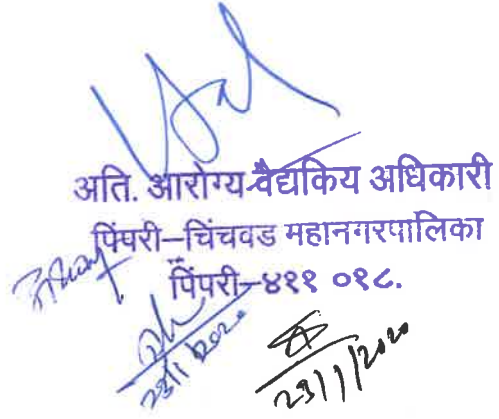 अति. आरोग्य वैद्यकिय अधिकारी
पिंपरी–चिंचवड महानगरपालिका
पिंपरी–४११ ०१८.
23/1/2020
23/1/2020